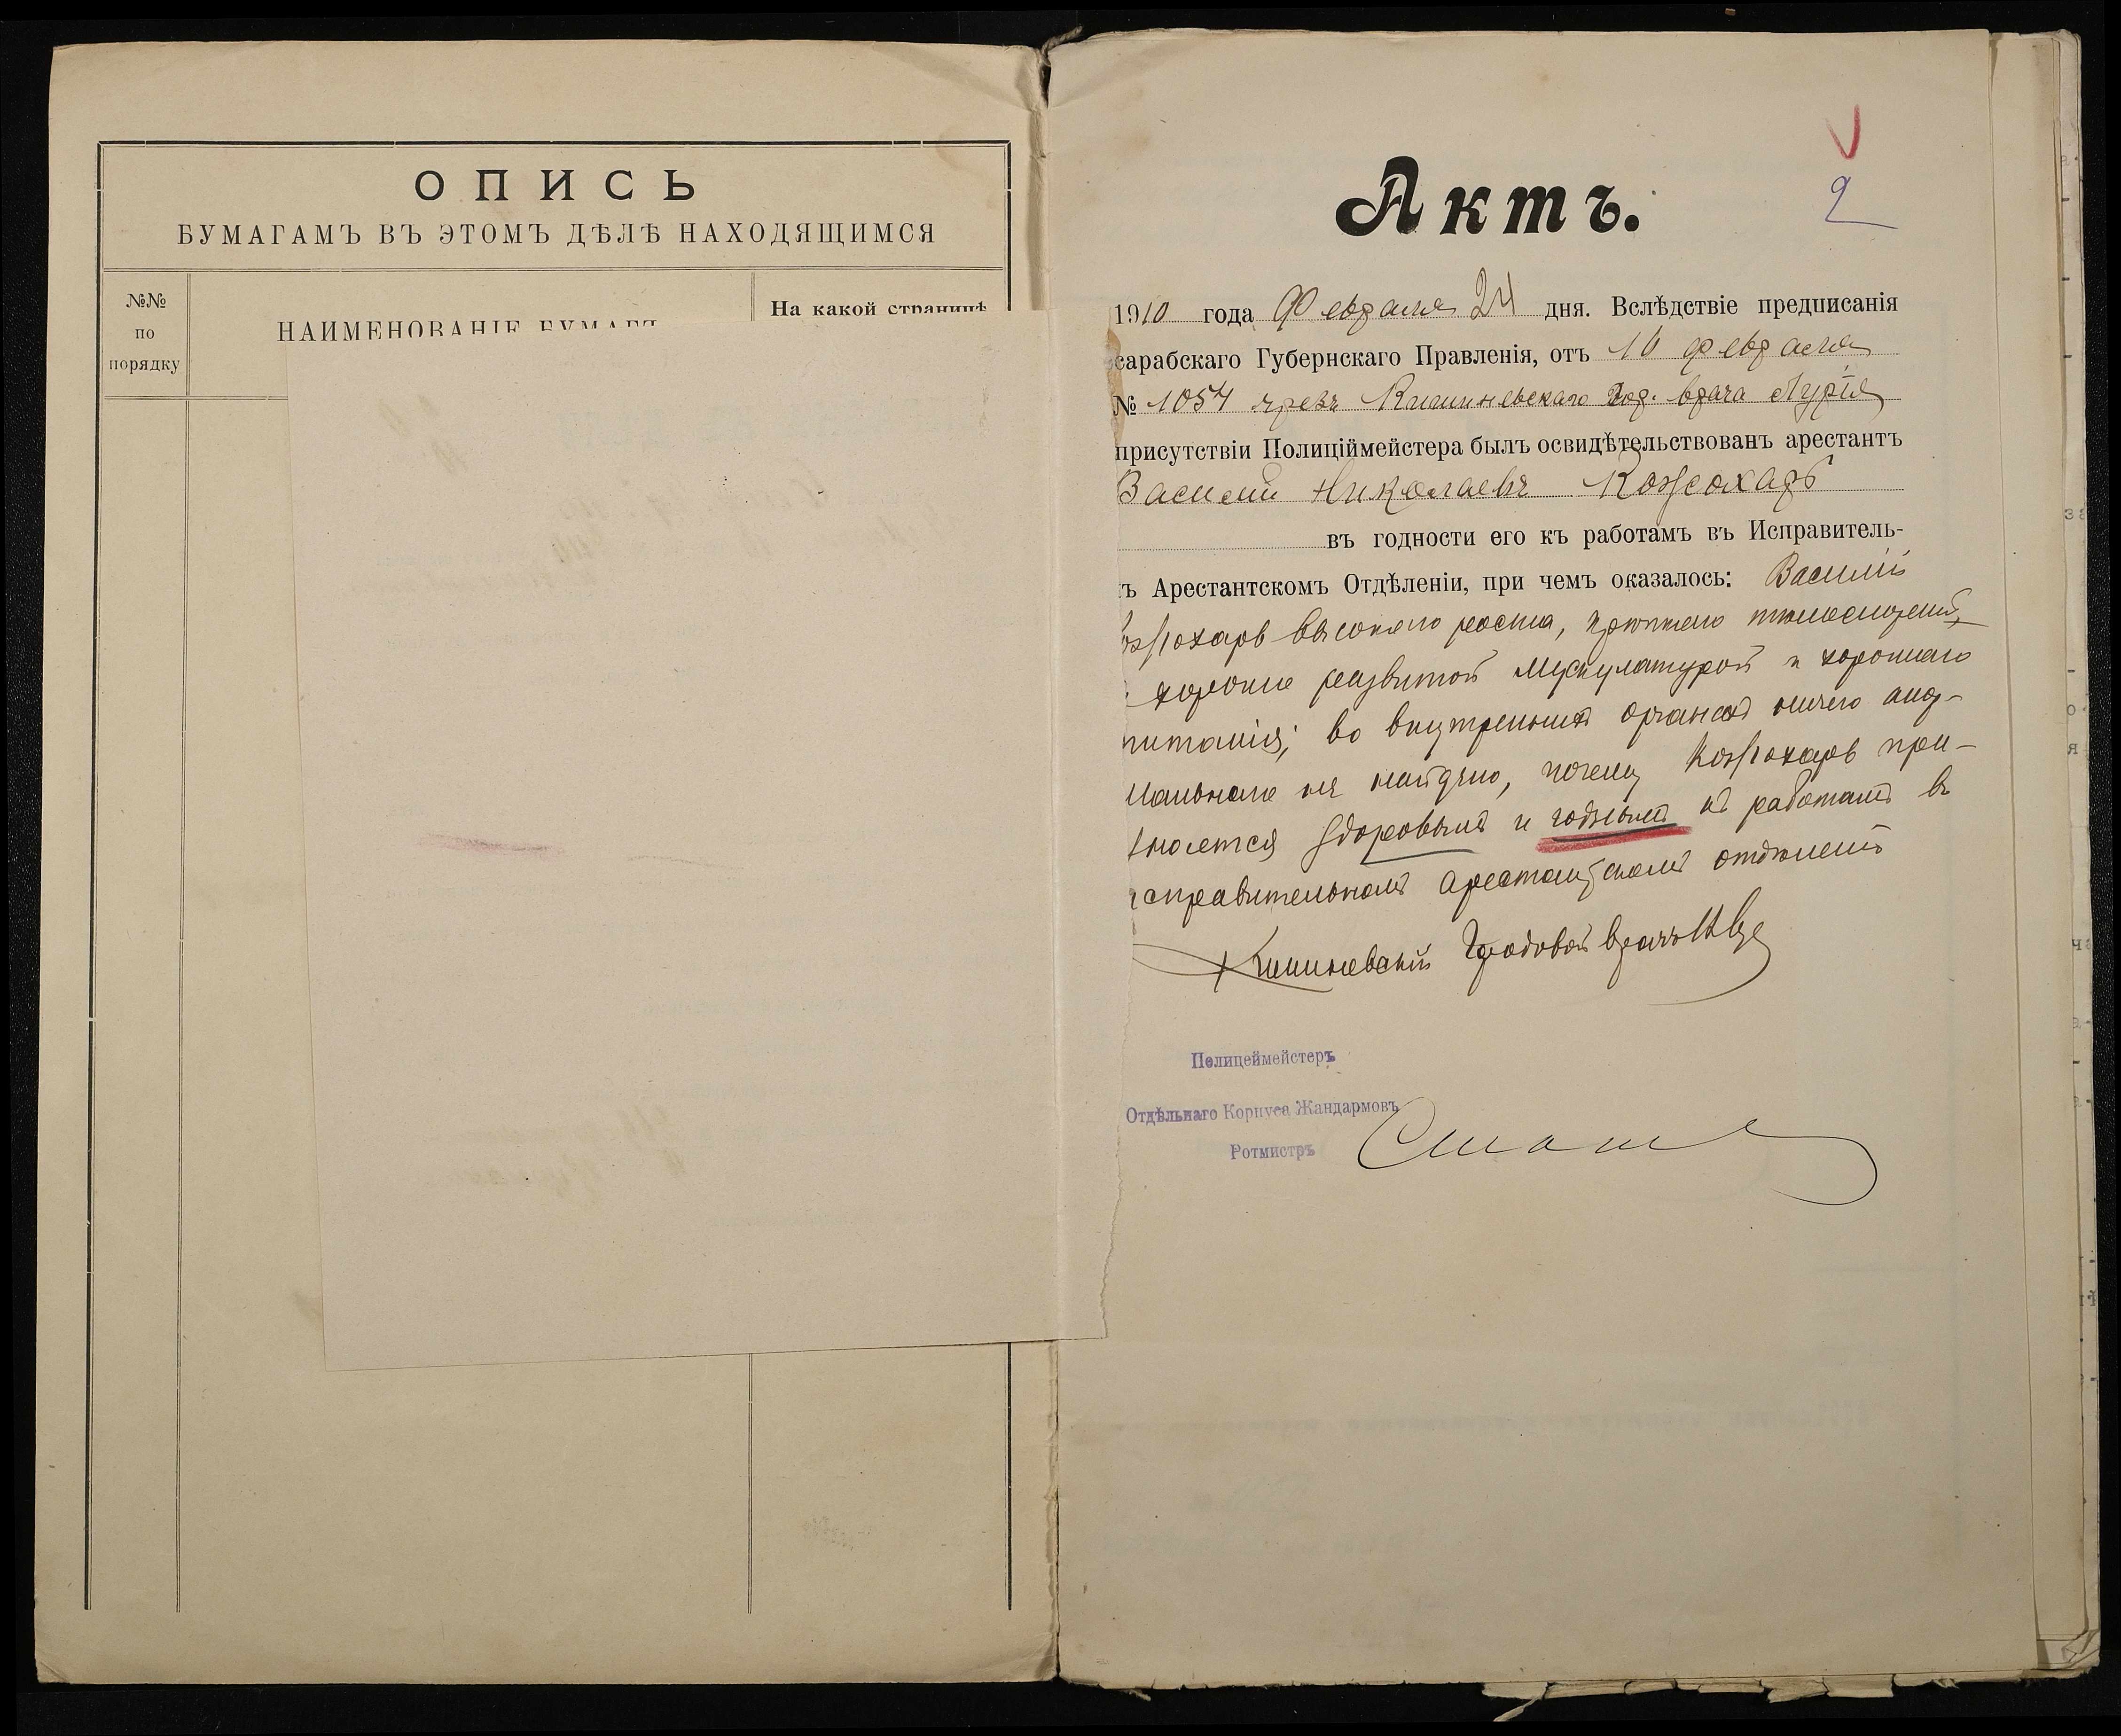 ОПИСЬ
БУМАГАМЪ ВЪ ЭТОМЪ ДѢЛѢ НАХОДЯЩИМСЯ
№№
по
порядку
НАИМЕНОВАНІЕ БУМАГЪ
На какой страницѣ
2
Актъ.
1910 года Февраля 24 дня. Вслѣдствіе предписанія
сарабскаго Губернскаго Правленія, отъ 10 февраля
№ 1054 чрезъ Кишиневскаго Гор. врача Лурія
присутствіи Полиціймейстера былъ освидѣтельствованъ арестантъ
Василій Николаевъ Кожохарь
въ годности его къ работамъ въ Исправитель-
ъ Арестантскомъ Отдѣленіи, при чемъ оказалось: Василій
ожохарь высокаго роста, крѣпкаго тѣлосложенія,
хорошо развитой мускулатурой и хорошаго
питанія; во внутреннихъ органахъ ничего анор-
мальнаго не найдено, почему Кожохарь при-
знается здоровымъ и годнымъ къ работамъ въ
справительномъ арестантскомъ отдѣленіи
Кишиневскій Городовой врачъ
Полицеймейстеръ
Отдѣльнаго Корпуса Жандармовъ
Ротмистръ